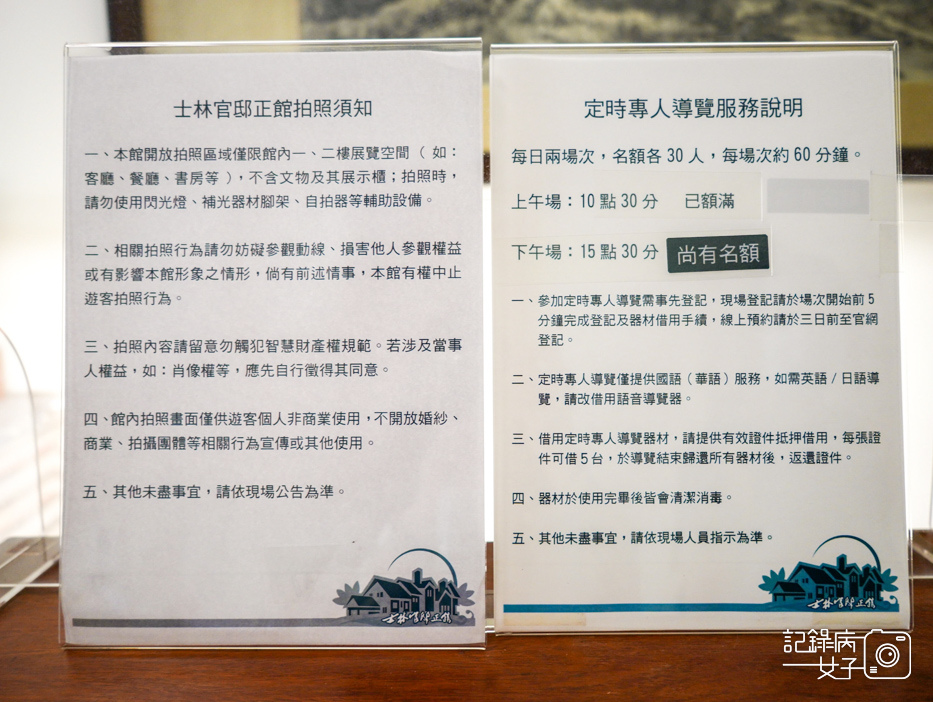 士林官邸正館拍照須知
一、本館開放拍照區域僅限館內一、二樓展覽空間（如：
客廳、餐廳、書房等），不含文物及其展示櫃；拍照時，
請勿使用閃光燈、補光器材腳架、自拍器等輔助設備。
二、相關拍照行為請勿妨礙參觀動線、損害他人參觀權益
或有影響本館形象之情形，倘有前述情事，本館有權中止
遊客拍照行為。
三、拍照內容請留意勿觸犯智慧財產權規範。若涉及當事
人權益，如：肖像權等，應先自行徵得其同意。
四、館內拍照畫面僅供遊客個人非商業使用，不開放婚紗、
商業、拍攝團體等相關行為宣傳或其他使用。
五、其他未盡事宜，請依現場公告為準。
士林官邸正館
定時專人導覽服務說明
每日兩場次，名額各30人，每場次約60分鐘。
上午場：10點30分 已額滿
下午場：15點30分 尚有名額
一、參加定時專人導覽需事先登記，現場登記請於場次開始前5
分鐘完成登記及器材借用手續，線上預約請於三日前至官網
登記。
二、定時專人導覽僅提供國語（華語）服務，如需英語/日語導
覽，請改借用語音導覽器。
三、借用定時專人導覽器材，請提供有效證件抵押借用，每張證
件可借5台，於導覽結束歸還所有器材後，返還證件。
四、器材於使用完畢後皆會清潔消毒。
五、其他未盡事宜，請依現場人員指示為準。
士林官邸正館
記錄病
女子